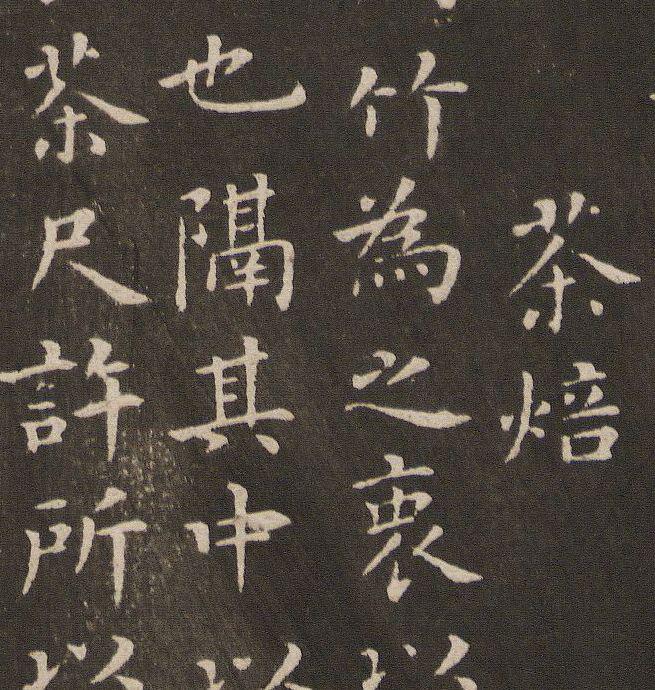 茶焙
竹為之衷以
也隔其中以
茶尺許所以